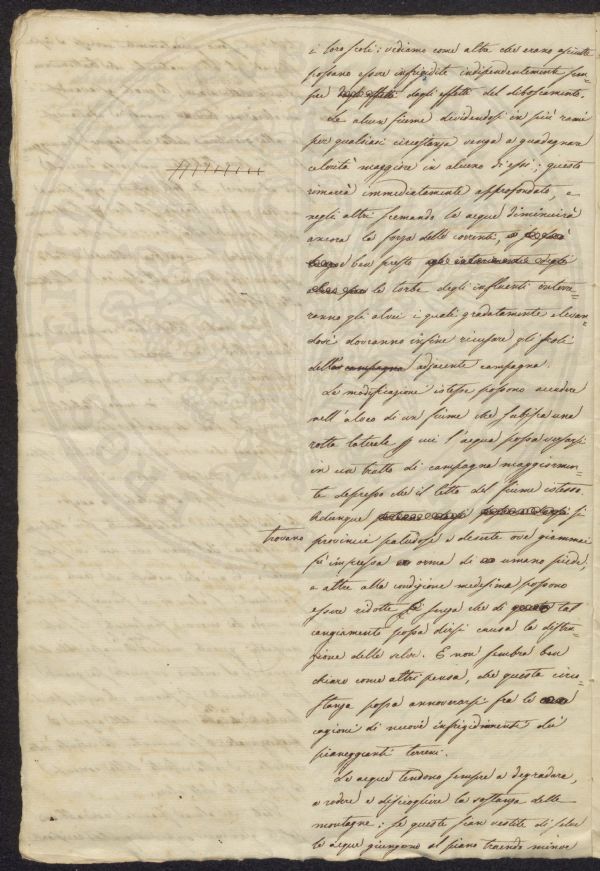 i loro scoli: vediamo come altre che erano asciutte
possano essere infrigidite indipendentemente sem-
pre dagli effetti degli effetti del diboscamento.
Se alcun fiume dividendosi in più rami
per qualsiasi circostanza venga a guadagnar
celerità maggiore in alcuno di essi; questo
rimarrà immediatamente approfondato, e
negli altri scemando le acque diminuirà
ancora la forza delle correnti,
ben presto
le torbe degli influenti interri-
ranno gli alvei i quali gradatamente elevan-
dosi dovranno infine ricusare gli scoli
della campagna adjacente campagna.
Le modificazioni istesse possono accadere
nell'alveo di un fiume che subissa una
rotta laterale p cui l'acqua possa versarsi
in un tratto di campagna maggiormen-
te depresso che il letto del fiume istesso.
Adunque si
trovano
provincie paludose e deserte ove giammai
fu impressa orma di umano piede,
e altre alla condizione medesima possono
essere ridotte senza che di tal
cangiamento possa dirsi causa la distru-
zione delle selve. E non sembra ben
chiaro come altri pensa, che questa circo-
stanza possa annoverarsi fra le
cagioni di nuovi infrigidimenti dei
pianeggianti terreni.
Le acque tendono sempre a degradare,
a rodere e disciogliere la sostanza delle
montagne: se queste sian vestite di selve
le acque giungono al piano traendo minor